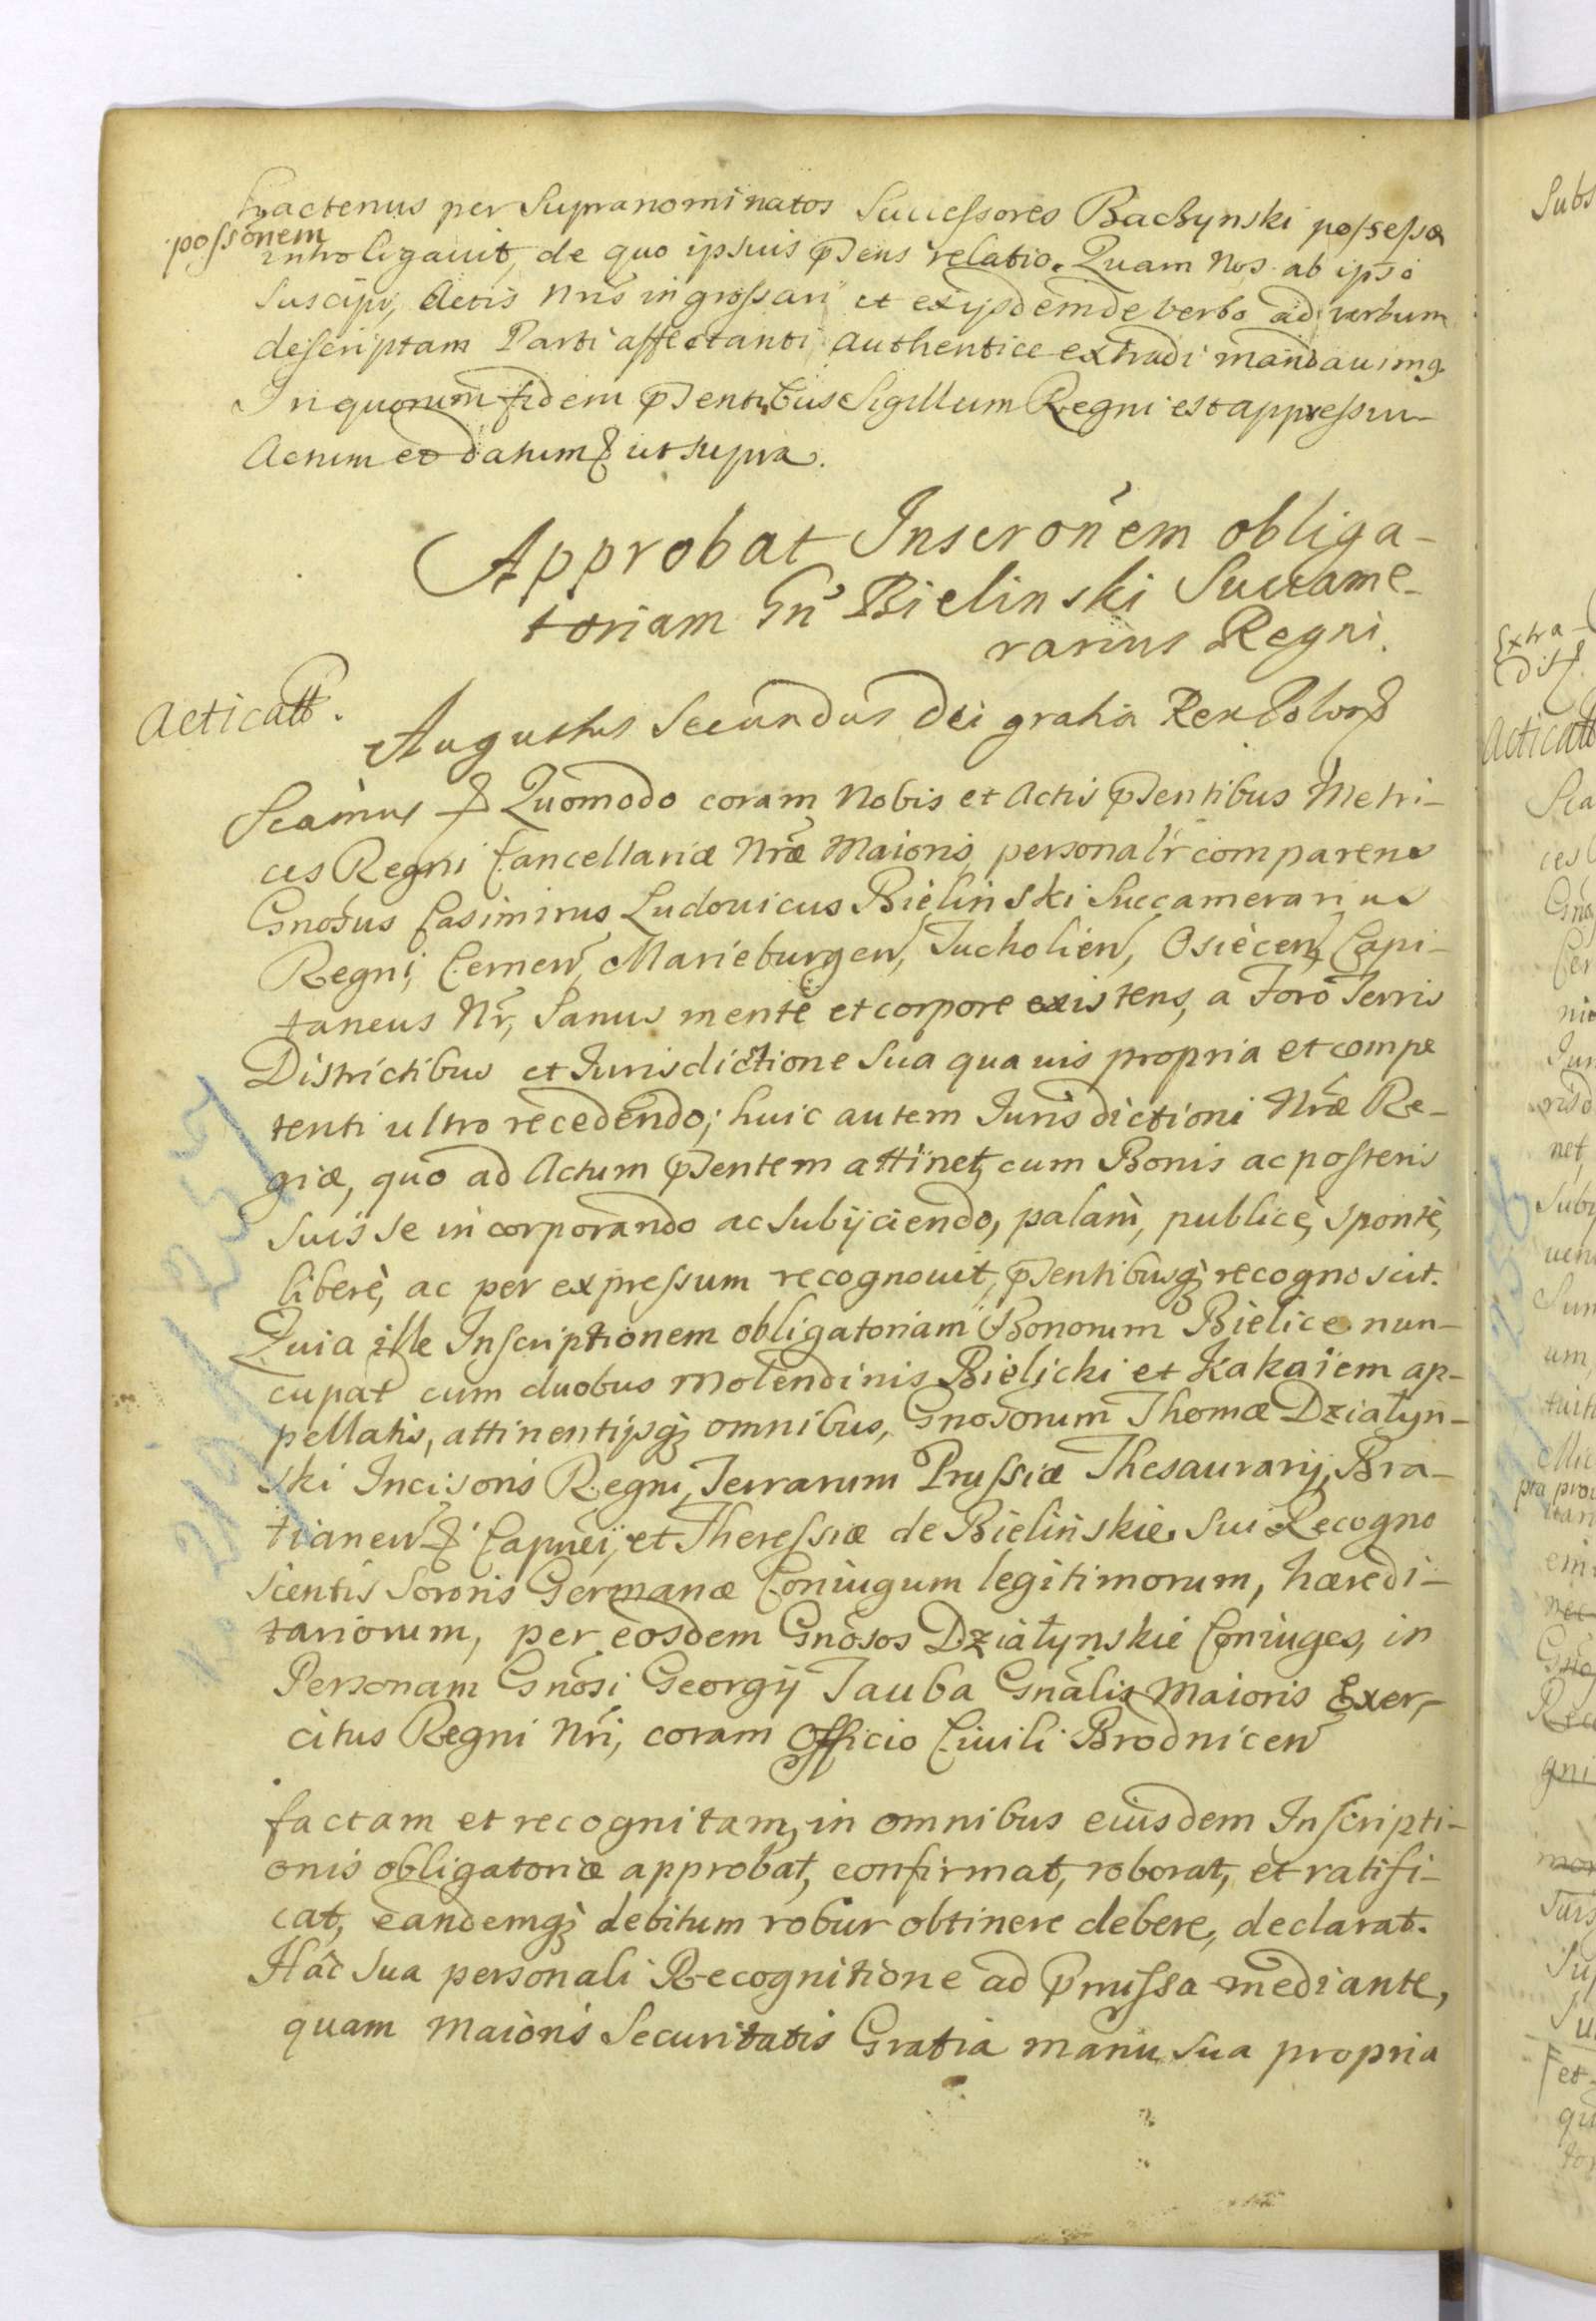 hactenus per Supranominatos Successores Bachynski possessa
possonem
introligavit, de quo ipsius pñs relatio. Quam Nos ab ipso
suscipi, Actis Nris ingrossari et exijsdem de verbo ad verbum
descriptam Parti affectanti authentice extradi mandauimq.
In quorum fidem pñtibus Sigillum Regni est appressum
Actum et datum ut supra.
Approbat Inscronem obliga-
toriam Gn Bielinski Succame-
rarius Regni.
Acticatt.
Augustus Secundus Dei gratia Rex Polor
Scaimus Quomodo coram Nobis et Actis pñtibus Metri-
ces Regni Cancellariæ Nræ Maioris, personalr comparens
Gnosus Casimirus Ludovicus Bielinski Succamerarius
Regni, Cernen, Marieburgen, Tucholien, Osiecen Capi-
taneus Nr, Sanus mente et corpore existens, a Foro Terris
Districtibus et Jurisdictione sua qua uis propria et compe
tenti ultro recedendo; huic autem Jurisdictioni Nræ Re-
giæ, quo ad Actum pñtem attinet, cum Bonis ac posteris
suis se incorporando ac subijciendo, palam, publicè, spontè,
liberè, ac per expressum recognouit, pñtibusq; recognoscit.
Quia ille Inscriptionem obligatoriam Bonorum Bielice nun-
cupat cum duobus Molendinis Bielicki et Kakaiem ap-
pellatis, attinentijsq; omnibus, Gnosorum Thomæ Działyn-
ski Incisoris Regni, Terrarum Prussiæ Thesaurarij, Bra-
tianen Capnei, et Theressiæ de Bielinskie, sui Recogno
scentis Sororis Germanæ Coniugum legitimorum, hæredi-
tariorum, per eosdem Gnosos Działynskie Coniuges, in
Personam Gnosi Georgij Tauba Gnalis Maioris Exer-
citus Regni Nri, coram Officio Ciuili Brodnicen
factam et recognitam, in omnibus eiusdem Inscripti-
onis obligatoriæ approbat, confirmat, roborat, et ratifi-
cat, eandemq; debitum robur obtinere debere, declarat.
Hâc sua personali Recognitione ad pmissa mediante,
quam maioris Securitatis Gratia manu sua propria